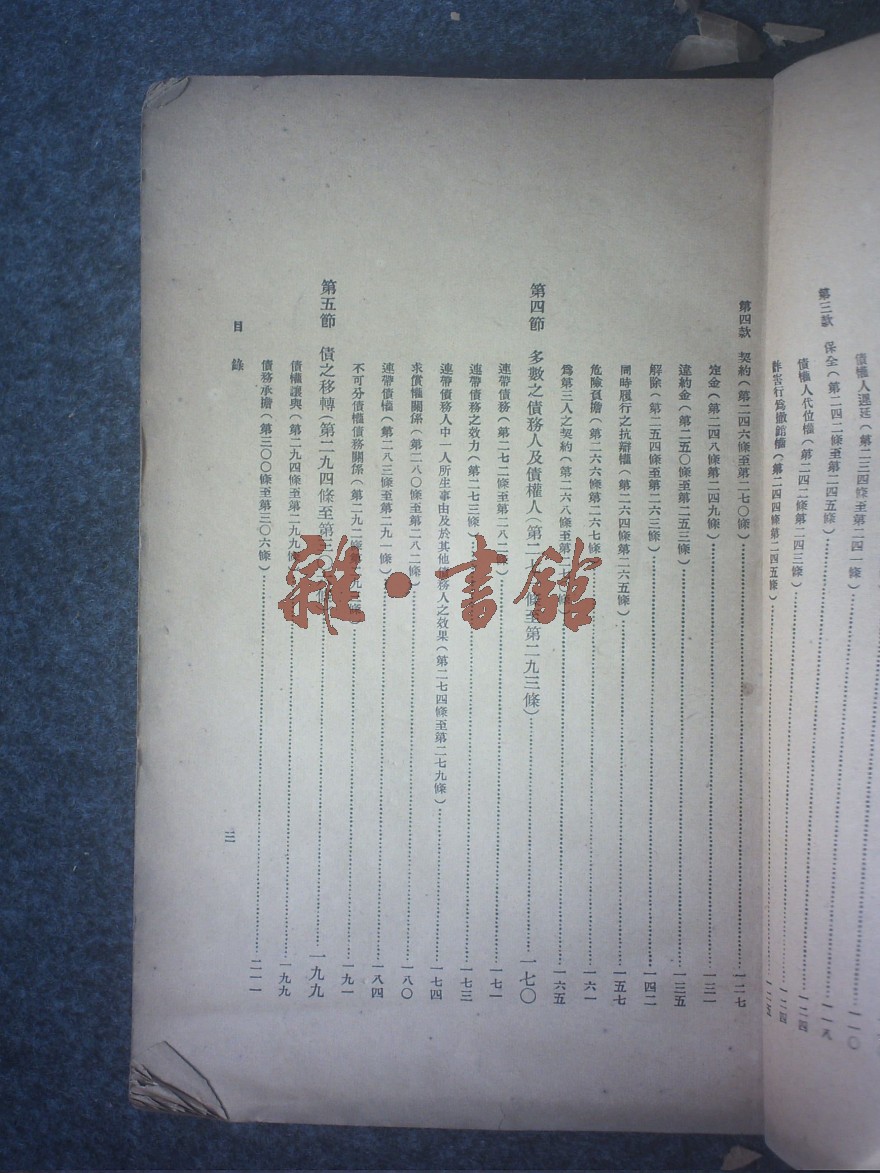 債權人遲延(第二三四條至第二四一條)…一一〇
第三款 保全(第二四二條至第二四五條)…一一九
債權人代位權(第二四二條第二四三條)…一二四
詐害行爲撤銷權(第二四四條第二四五條)
第四款 契約(第二四六條至第二七〇條)…一二七
定金(第二四八條第二四九條)…一三一
違約金(第二五〇條至第二五三條)…一三五
解除(第二五四條至第二六三條)…一四二
同時履行之抗辯權(第二六四條第二六五條)…一五七
危險負擔(第二六六條第二六七條)…一六一
爲第三人之契約(第二六八條至第二條)…一六五
第四節 多數之債務人及債權人(第二七條至第二九三條)…一七〇
連帶債務(第二七二條至第二八二條)…一七一
連帶債務之效力(第二七三條)…一七三
連帶債務人中一人所生事由及於其他債務人之效果(第二七四條至第二七九條)…一七四
求償權關係(第二八〇條至第二八二條)…一八〇
連帶債權(第二八三條至第二九一條)…一八四
不可分債權債務關係(第二九二條第二九三條)…一九一
第五節 債之移轉(第二九四條至第三〇條)…一九九
債權讓與(第二九四條至第二九九條)…一九九
債務承擔(第三〇〇條至第三〇六條)…二一一
目錄
三
雜·書館